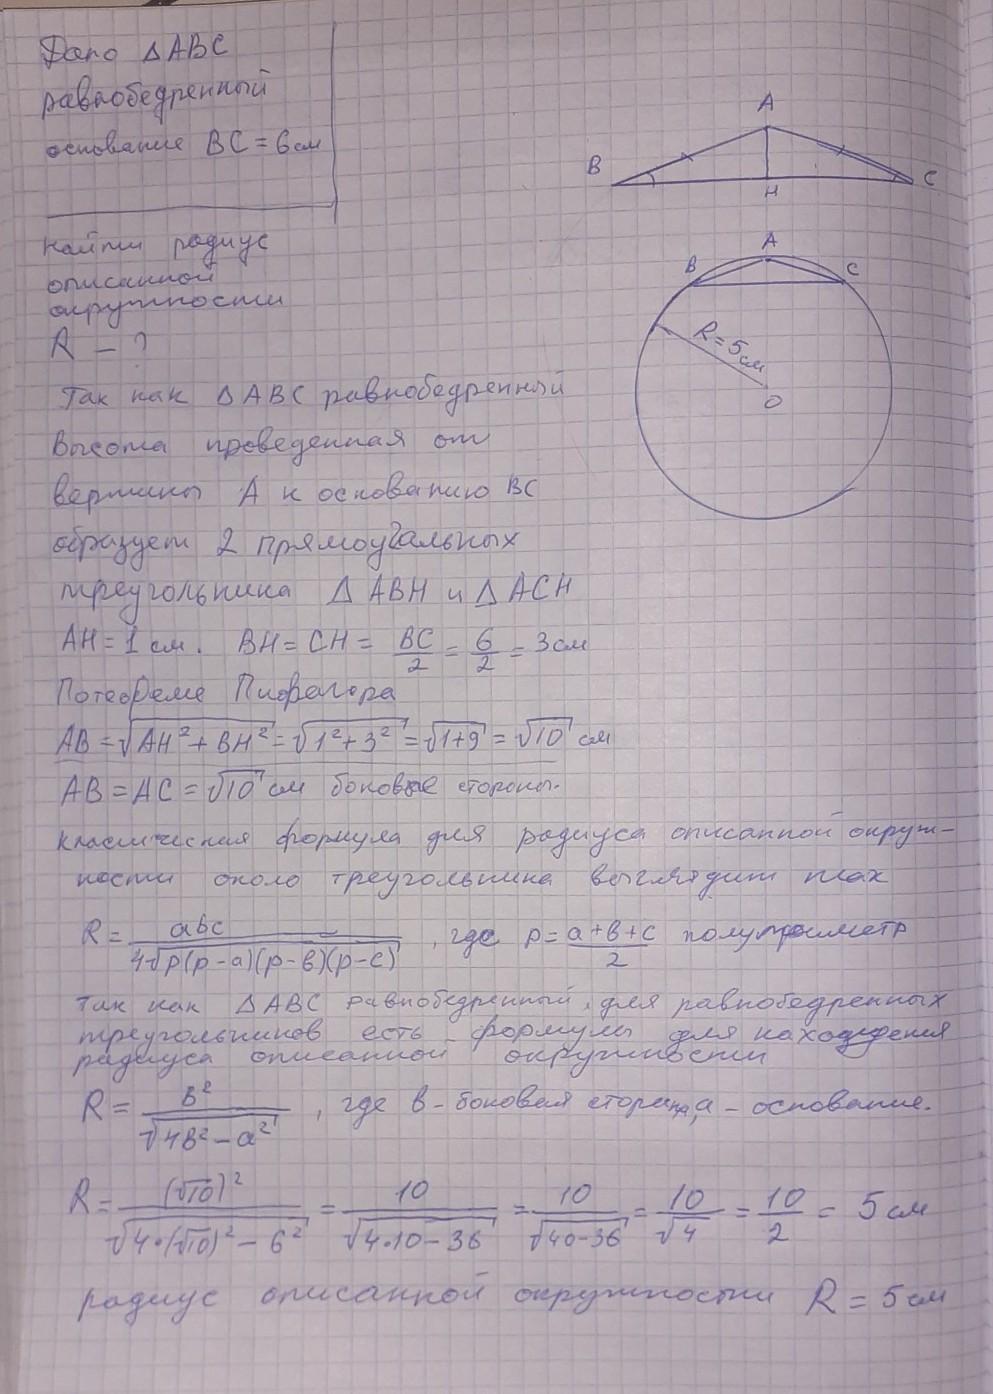 Дано ΔABC
равнобедренный
основание BC = 6 см
A
B
C
H
Найти радиус
описанной
окружности
R – ?
A
B
C
R = 5 см
O
Так как ΔABC равнобедренный
Высота проведенная от
вершины A к основанию BC
образует 2 прямоугольных
треугольника ΔABH и ΔACH
AH = 1 см. BH = CH = BC/2 = 6/2 = 3 см
По теореме Пифагора
AB = √(AH² + BH²) = √(1² + 3²) = √(1+9) = √10 см
AB = AC = √10 см боковые стороны.
классическая формула для радиуса описанной окруж-
ности около треугольника выглядит так
R = abc/(4√(p(p-a)(p-b)(p-c))), где p = (a+b+c)/2 полупериметр
так как ΔABC равнобедренный, для равнобедренных
треугольников есть формулы для нахождения
радиуса описанной окружности
R = b²/√(4b² – a²), где b - боковая сторона, a - основание.
R = (√10)²/√(4·(√10)² – 6²) = 10/√(4·10 – 36) = 10/√(40-36) = 10/√4 = 10/2 = 5 см
радиус описанной окружности R = 5 см